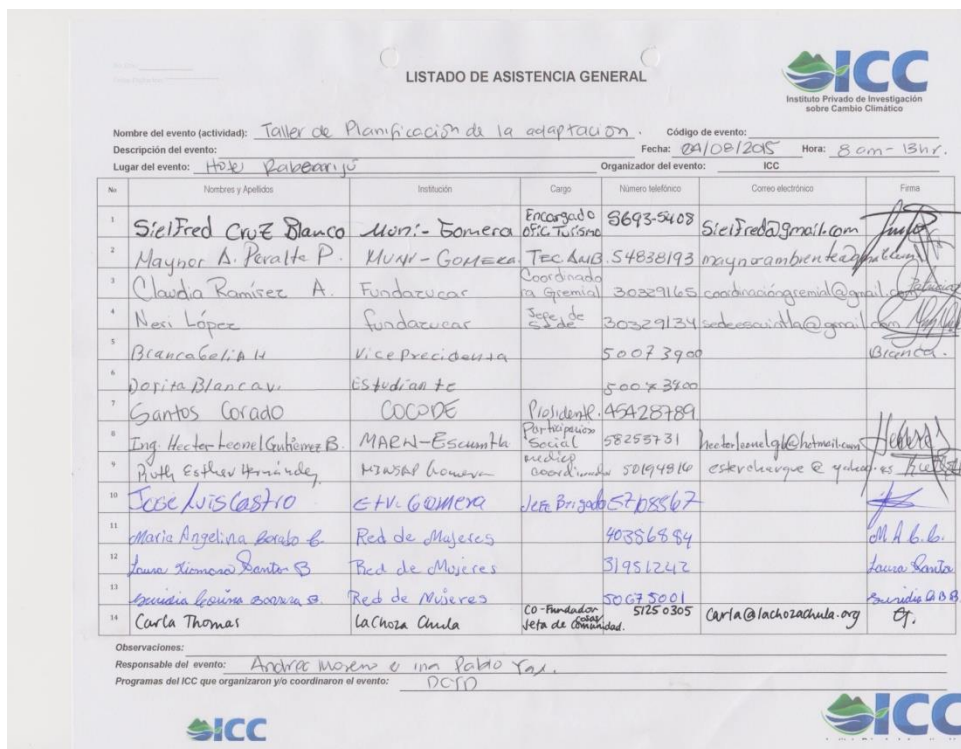 LISTADO DE ASISTENCIA GENERAL
ICC
Instituto Privado de Investigación
sobre Cambio Climático
Nombre del evento (actividad): Taller de Planificación de la adaptación. Código de evento:
Descripción del evento: Fecha: 04/08/2015 Hora: 8 am - 13hr.
Lugar del evento: Hotel Organizador del evento: ICC
No Nombres y Apellidos Institución Cargo Número telefónico Correo electrónico Firma
1 Sielfred Cruz Blanco Muni- Gomera Encargado Ofic Turismo 5693-5408 Sielfred@gmail.com
2 Maynor A. Peralta P. MUNI-GOMERA. TEC AMB. 54838193
3 Claudia Ramírez A. Fundazucar Coordinadora Gremial 30329165 coordinacióngremial@gmail.com
4 Neri López fundazucar Jefe de Sede 30329134 sedeescuintla@gmail.com
5 H VicePrecidenta 50073900 Blanca.
6 Dorita Estudiante
7 Santos Corado COCODE Presidente. 45428789
8 Ing. Hector Leonel Gutierrez B. MARN-Escuintla Participacion Social 58255731
9 Ruth Esther Hernández Gomera medico coordinador
10 Jose Luis Castro Gomera Jefe Brigada 57108867
11 Maria Angelina Red de Mujeres 40386884
12 Laura B Red de Mujeres 31951242 Laura
13 Red de Mujeres 50675001
14 Carla Thomas La Choza Chula CO-Fundador Jefa de cosas comunidad. 51250305 carla@lachozachula.org
Observaciones:
Responsable del evento: Moreno Pablo
Programas del ICC que organizaron y/o coordinaron el evento:
ICC
ICC